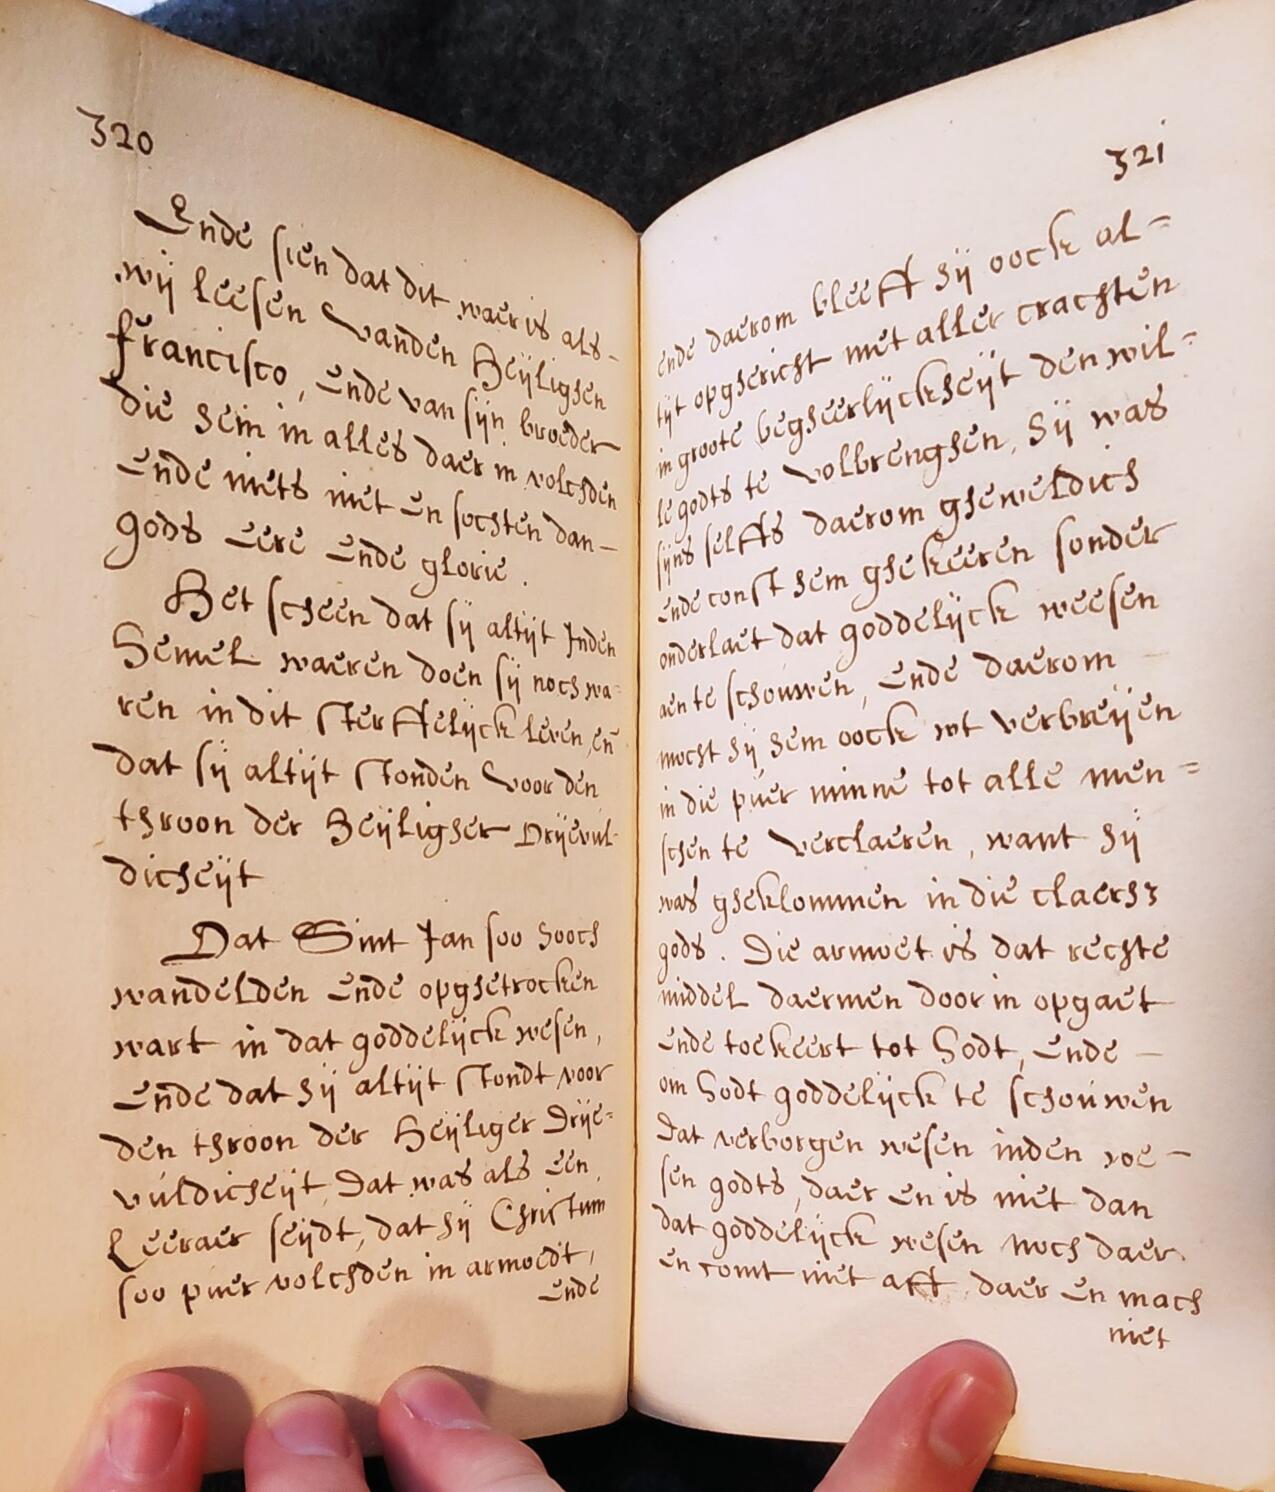 320
Ende sien dat dit waer is als-
wij leesen vanden Heijlighen
francisco, ende van sijn broeder
die hem in alles daer in volchden
ende niets niet en sochten dan-
gods eere ende glorie.
Het scheen dat sij altijt Inden
hemel waeren doen sij noch wa=
ren in dit sterffelijck leven, en̄
dat sij altijt stonden voor den
throon der heijligher Drijevul-
dicheijt
Dat Sint Jan soo hooch
wandelden ende opghetrocken
wart in dat goddelijck wesen,
ende dat hij altijt stondt voor
den throon der heijliger Drije=
vuldicheijt, Dat was als een
Leeraer seijdt, dat hij Christum
soo puer volchden in armoedt,
ende
321
ende daerom bleeff hij oock al=
tijt opghericht met aller crachten
in groote begheerlijckheijt den wil=
le godts te volbrenghen, hij was
sijns selffs daerom gheweldich
ende const hem ghekeeren sonder
onderlaet dat goddelijck weesen
aen te schouwen, ende daerom -
mocht hij hem oock wt verbreijen
in die puer minne tot alle men=
schen te verclaeren, want hij
was gheklommen in die claerh3
gods. Die armoet is dat rechte
middel daermen door in opgaet
ende toekeert tot Godt, ende -
om Godt goddelijck te schouwen
Dat verborgen wesen inden we-
sen godts, daer en is niet dan
dat goddelijck wesen noch daer
en comt niet aff daer en mach
niet